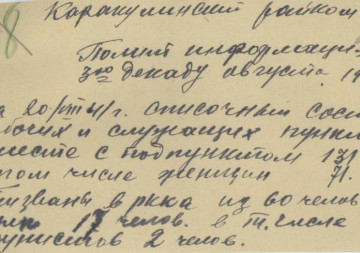 8 Каракулинский райком
Полит информаци
3ю декаду августа 19
на 20/VIII 41 г. списочный сос
бочих и служащих пункт
месте с подпунктом 131
том числе женщин 71.
ризваны в ркка из во челов
17 челов. в т. числе
унистов 2 челов.